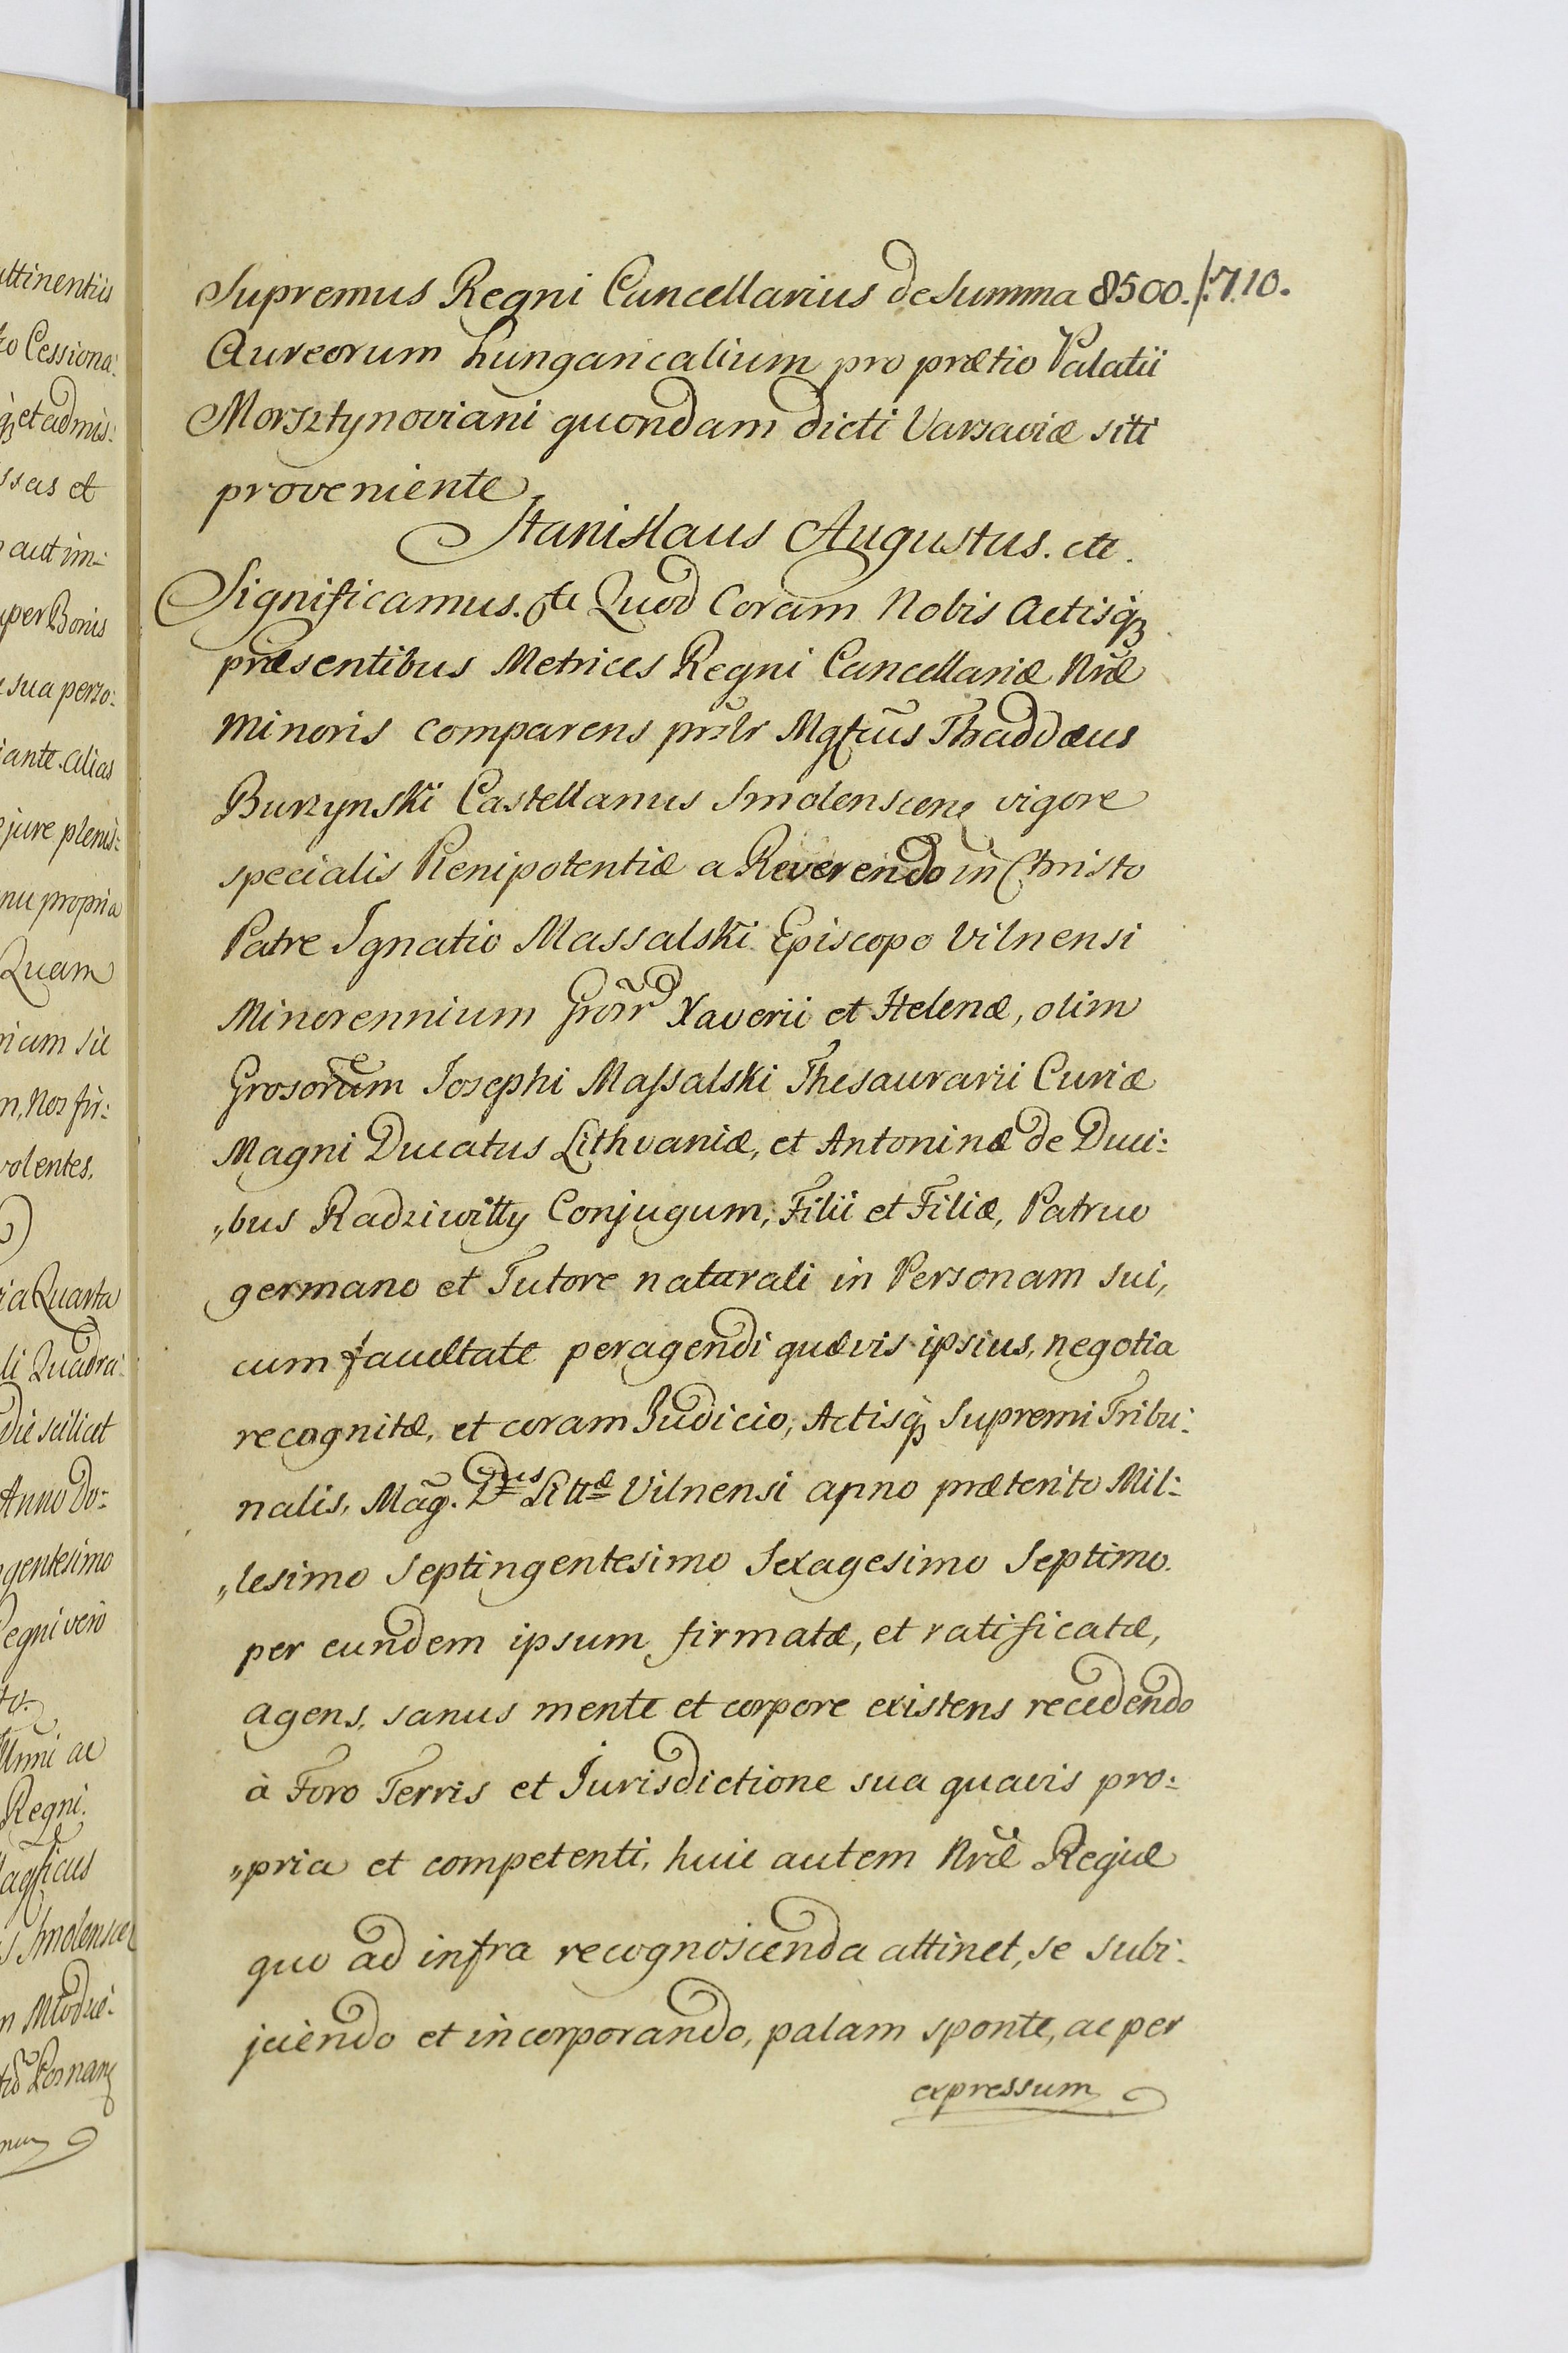 Supremus Regni Cancellarius de Summa 8500./.7.10.
Aureorum hungaricalium pro prætio Palatii
Morsztynoviani quondam dicti Varsaviæ siti
proveniente
Stanislaus Augustus. etc.
Significamus. etc Quod Coram Nobis Actisq́
præsentibus Metrices Regni Cancellariæ Nræ
minoris comparens prsltr Mgfcus Thaddæus
Burzynski Castellanus Smolenscens vigore
specialis Plenipotentiæ a Reverendo in Christo
Patre Ignatio Massalski Episcopo Vilnensi
Minorennium Grorr Xaverii et Helenæ, olim
Grosorum Josephi Massalski Thesaurarii Curiæ
Magni Ducatus Lithvaniæ, et Antoninæ de Duci:
„bus Radziwiłły Conjugum, Filii et Filiæ, Patruo
germano et Tutore naturali in Personam sui,
cum facultate peragendi quævis ipsius, negotia
recognitæ, et coram Judicio, Actisq́ Supremi Tribu:
nalis, Mag. Dus Littæ Vilnensi anno præterito Mil:
„lesimo Septingentesimo Sexagesimo Septimo.
per eundem ipsum firmatæ, et ratificatæ,
agens, sanus mente et corpore existens recedendo
à Foro Terris et Jurisdictione sua quavis pro:
„pria et competenti, huic autem Nræ Regiæ
quo ad infra recognoscenda attinet, se subi:
jciendo et incorporando, palam sponte, ac per
expressum
attinentiis
Cessiona:
et admis:
ssas et
aut im:
uper Bonis
sua perso:
alias
jure plenis:
nu propria
Quam
sic
n, Nos fir:
volentes.
ria Quarta
li Quadra:
die scilicet
Anno Do:
ngentesimo
Regni vero
ac
Regni.
agficus
s Smolensce
n Młodzie:
Posnan